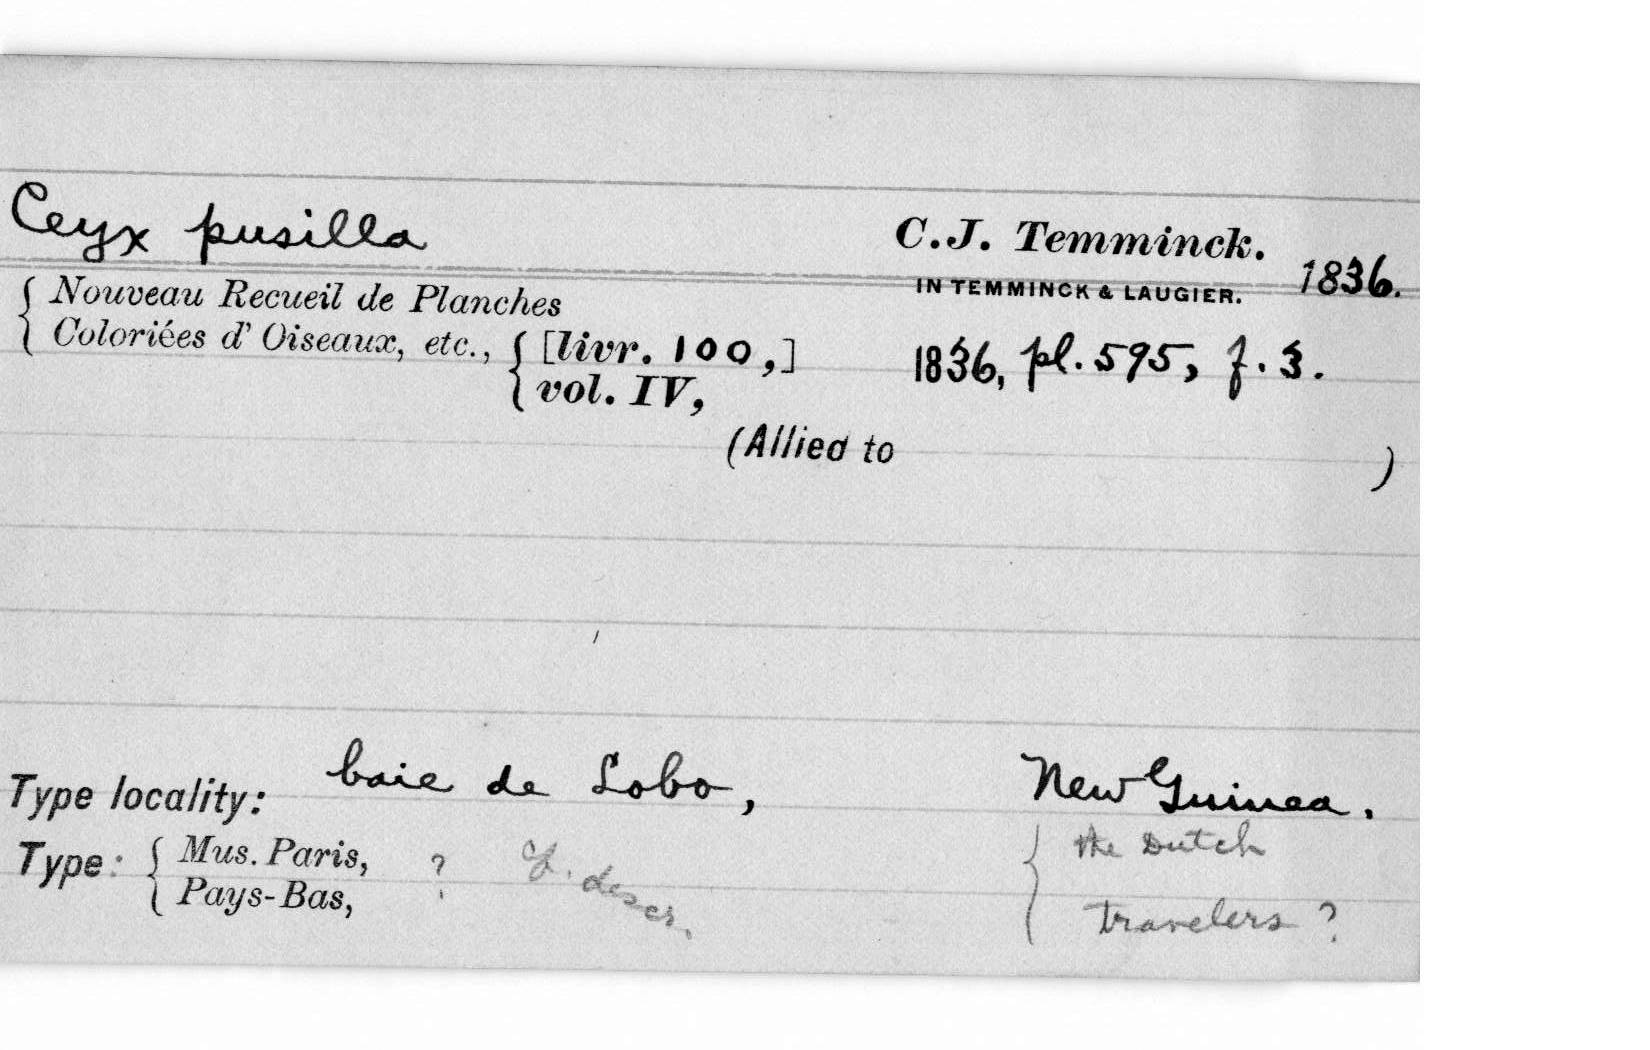 Ceyx pusilla
C.J. Temminck.
IN TEMMINCK & LAUGIER.
1836.
Nouveau Recueil de Planches
Coloriées d' Oiseaux, etc., [livr. 100,]
vol. IV,
1836, pl. 595, f. 3.
(Allied to )
Type locality: baie de Lobo, New Guinea.
Type: Mus. Paris,
Pays-Bas, ? cf. descr.
the Dutch
travelers ?